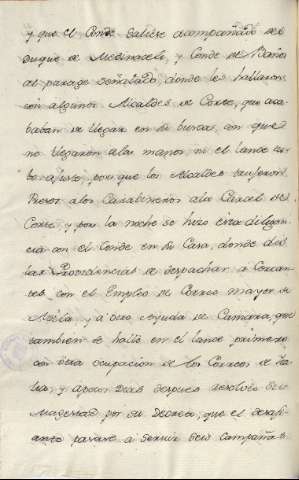 y que el Conde saliese acompañado del
Duque de Medinaceli, y Conde de Baños
al parage señalado, donde les hallaron
con algunos Alcaldes de Corte, que aca
baban de llegar en su busca, con que
no llegaron a las manos, ni el lance tu
bo ajuste, porque los Alcaldes
Presos a los Caballeros a la Carcel de
Corte, y por la noche se hizo esta diligen
cia con el Conde en su Casa, donde
las Providencias de despachar a
con el Empleo de Correo mayor de
y a otro Ayuda de Camara, que
tambien se halló en el lance primero
con otra ocupacion de los Correos de Ita
lia, y a pocos Dias despues resolvió Su
Magestad por su Decreto, que el desafi
ante pasase a servir seis Campañas